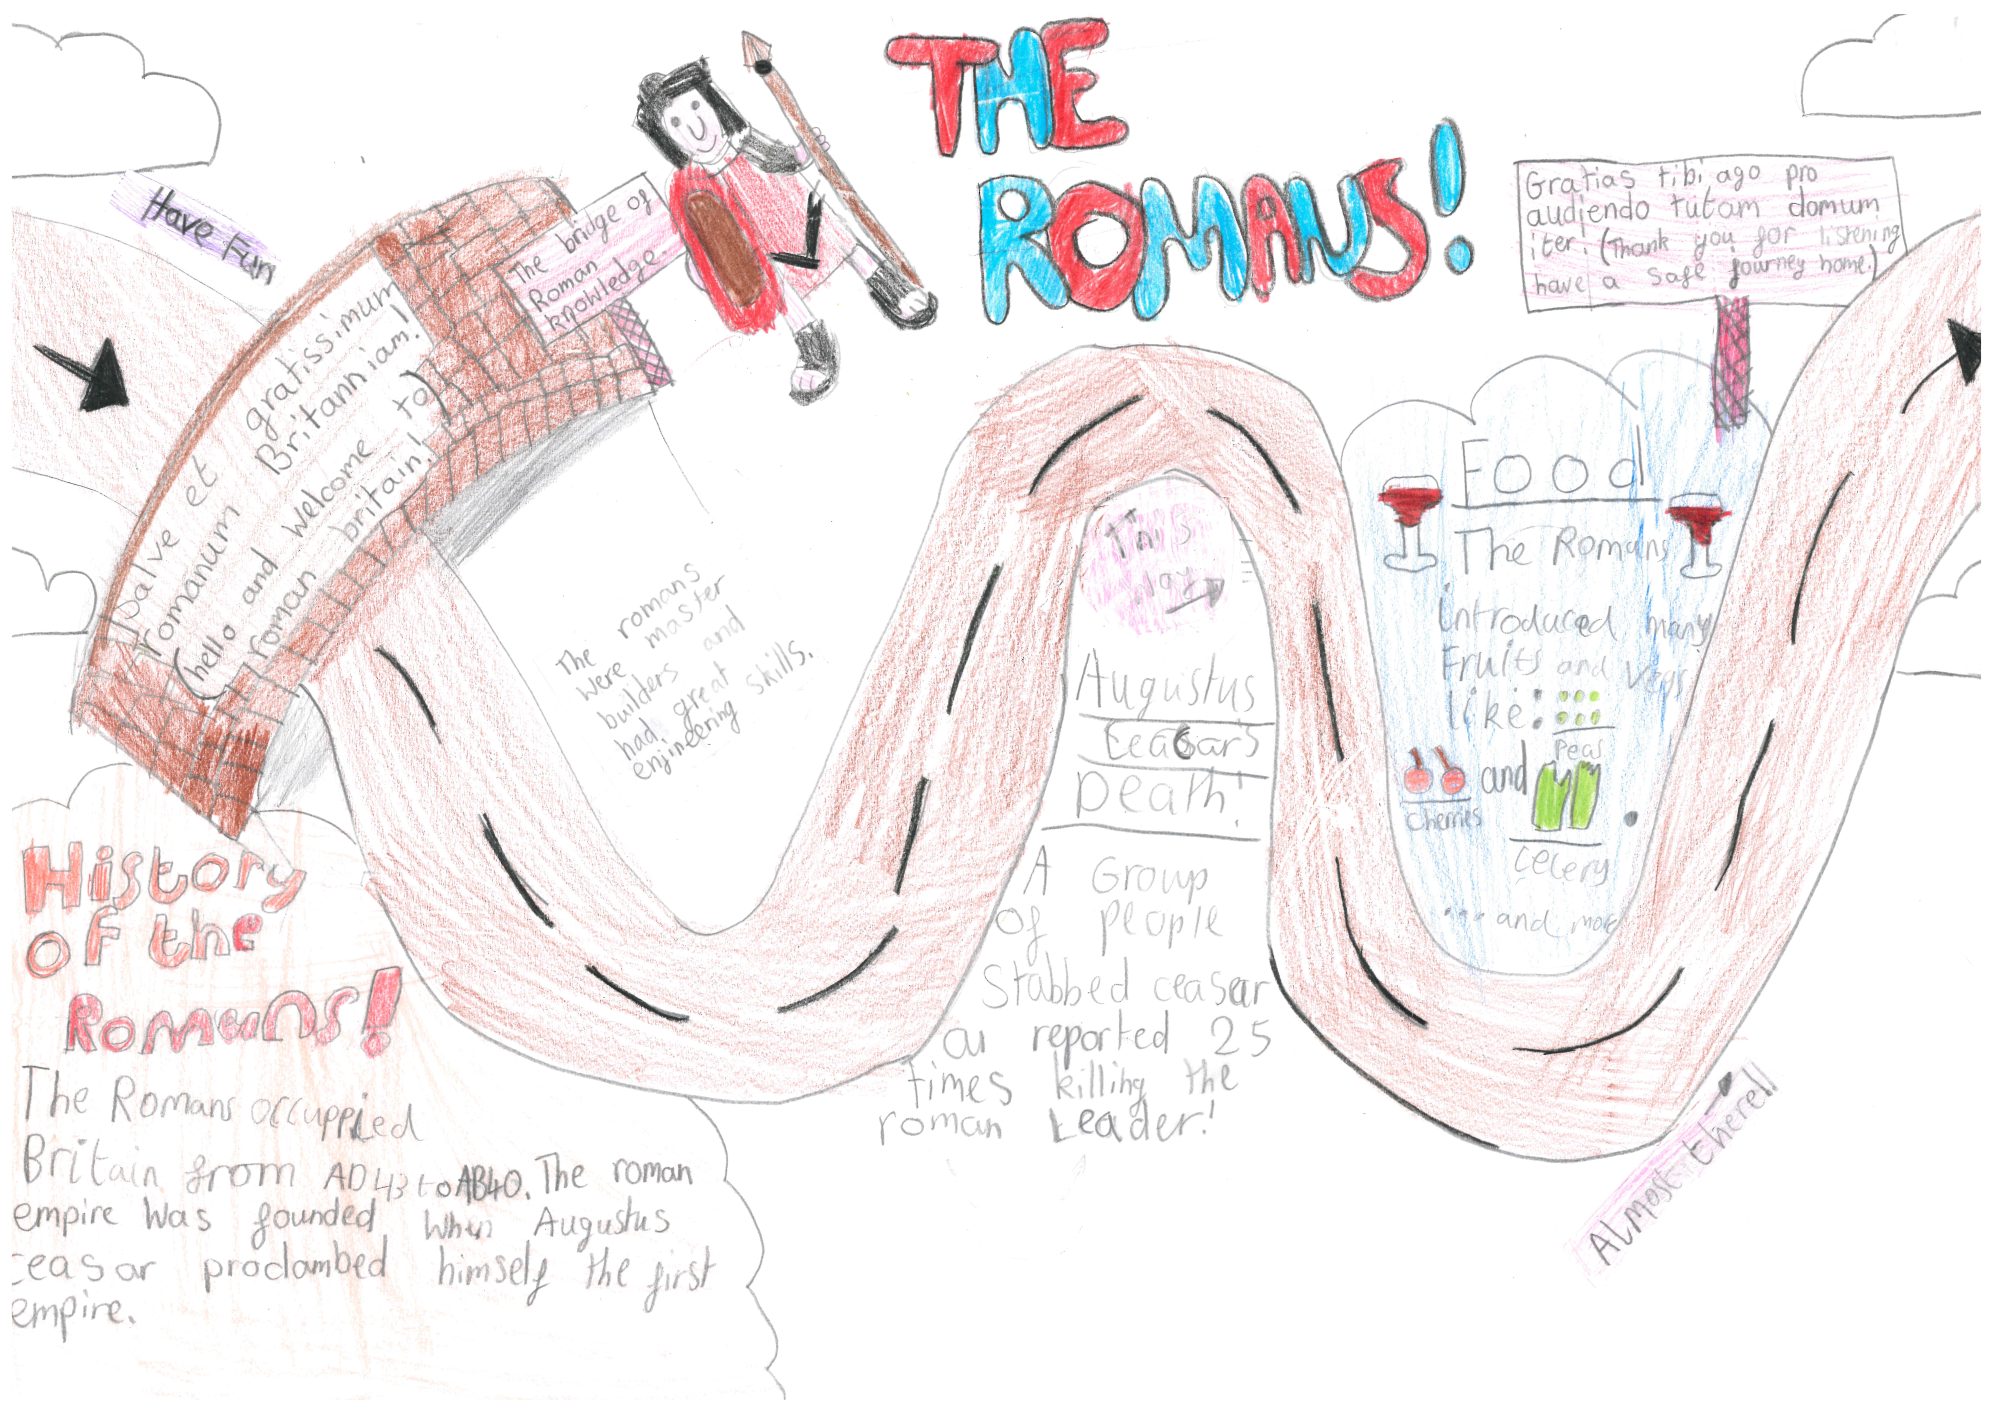 THE
ROMANS!
Have Fun
Salve et gratissimum
romanum Britanniam!
(hello and welcome to
roman britain!)
The bridge of
Roman
knowledge.
Gratias tibi ago pro
audiendo tutam domum
iter. (Thank you for listening
have a safe journey home.)
The romans
were master
builders and
had great
enjineering skills.
This
way
Augustus
Ceasar's
Death!
A Group
of people
Stabbed ceasar
a reported 25
times killing the
roman Leader!
Food
The Romans
introduced many
Fruits and Vegs
like:
Peas
Cherries
and
Celery
... and more
Almost there!!
History
of the
Romans!
The Romans occuppied
Britain from AD43 to AB40. The roman
empire was founded when Augustus
ceasar proclambed himself the first
empire.